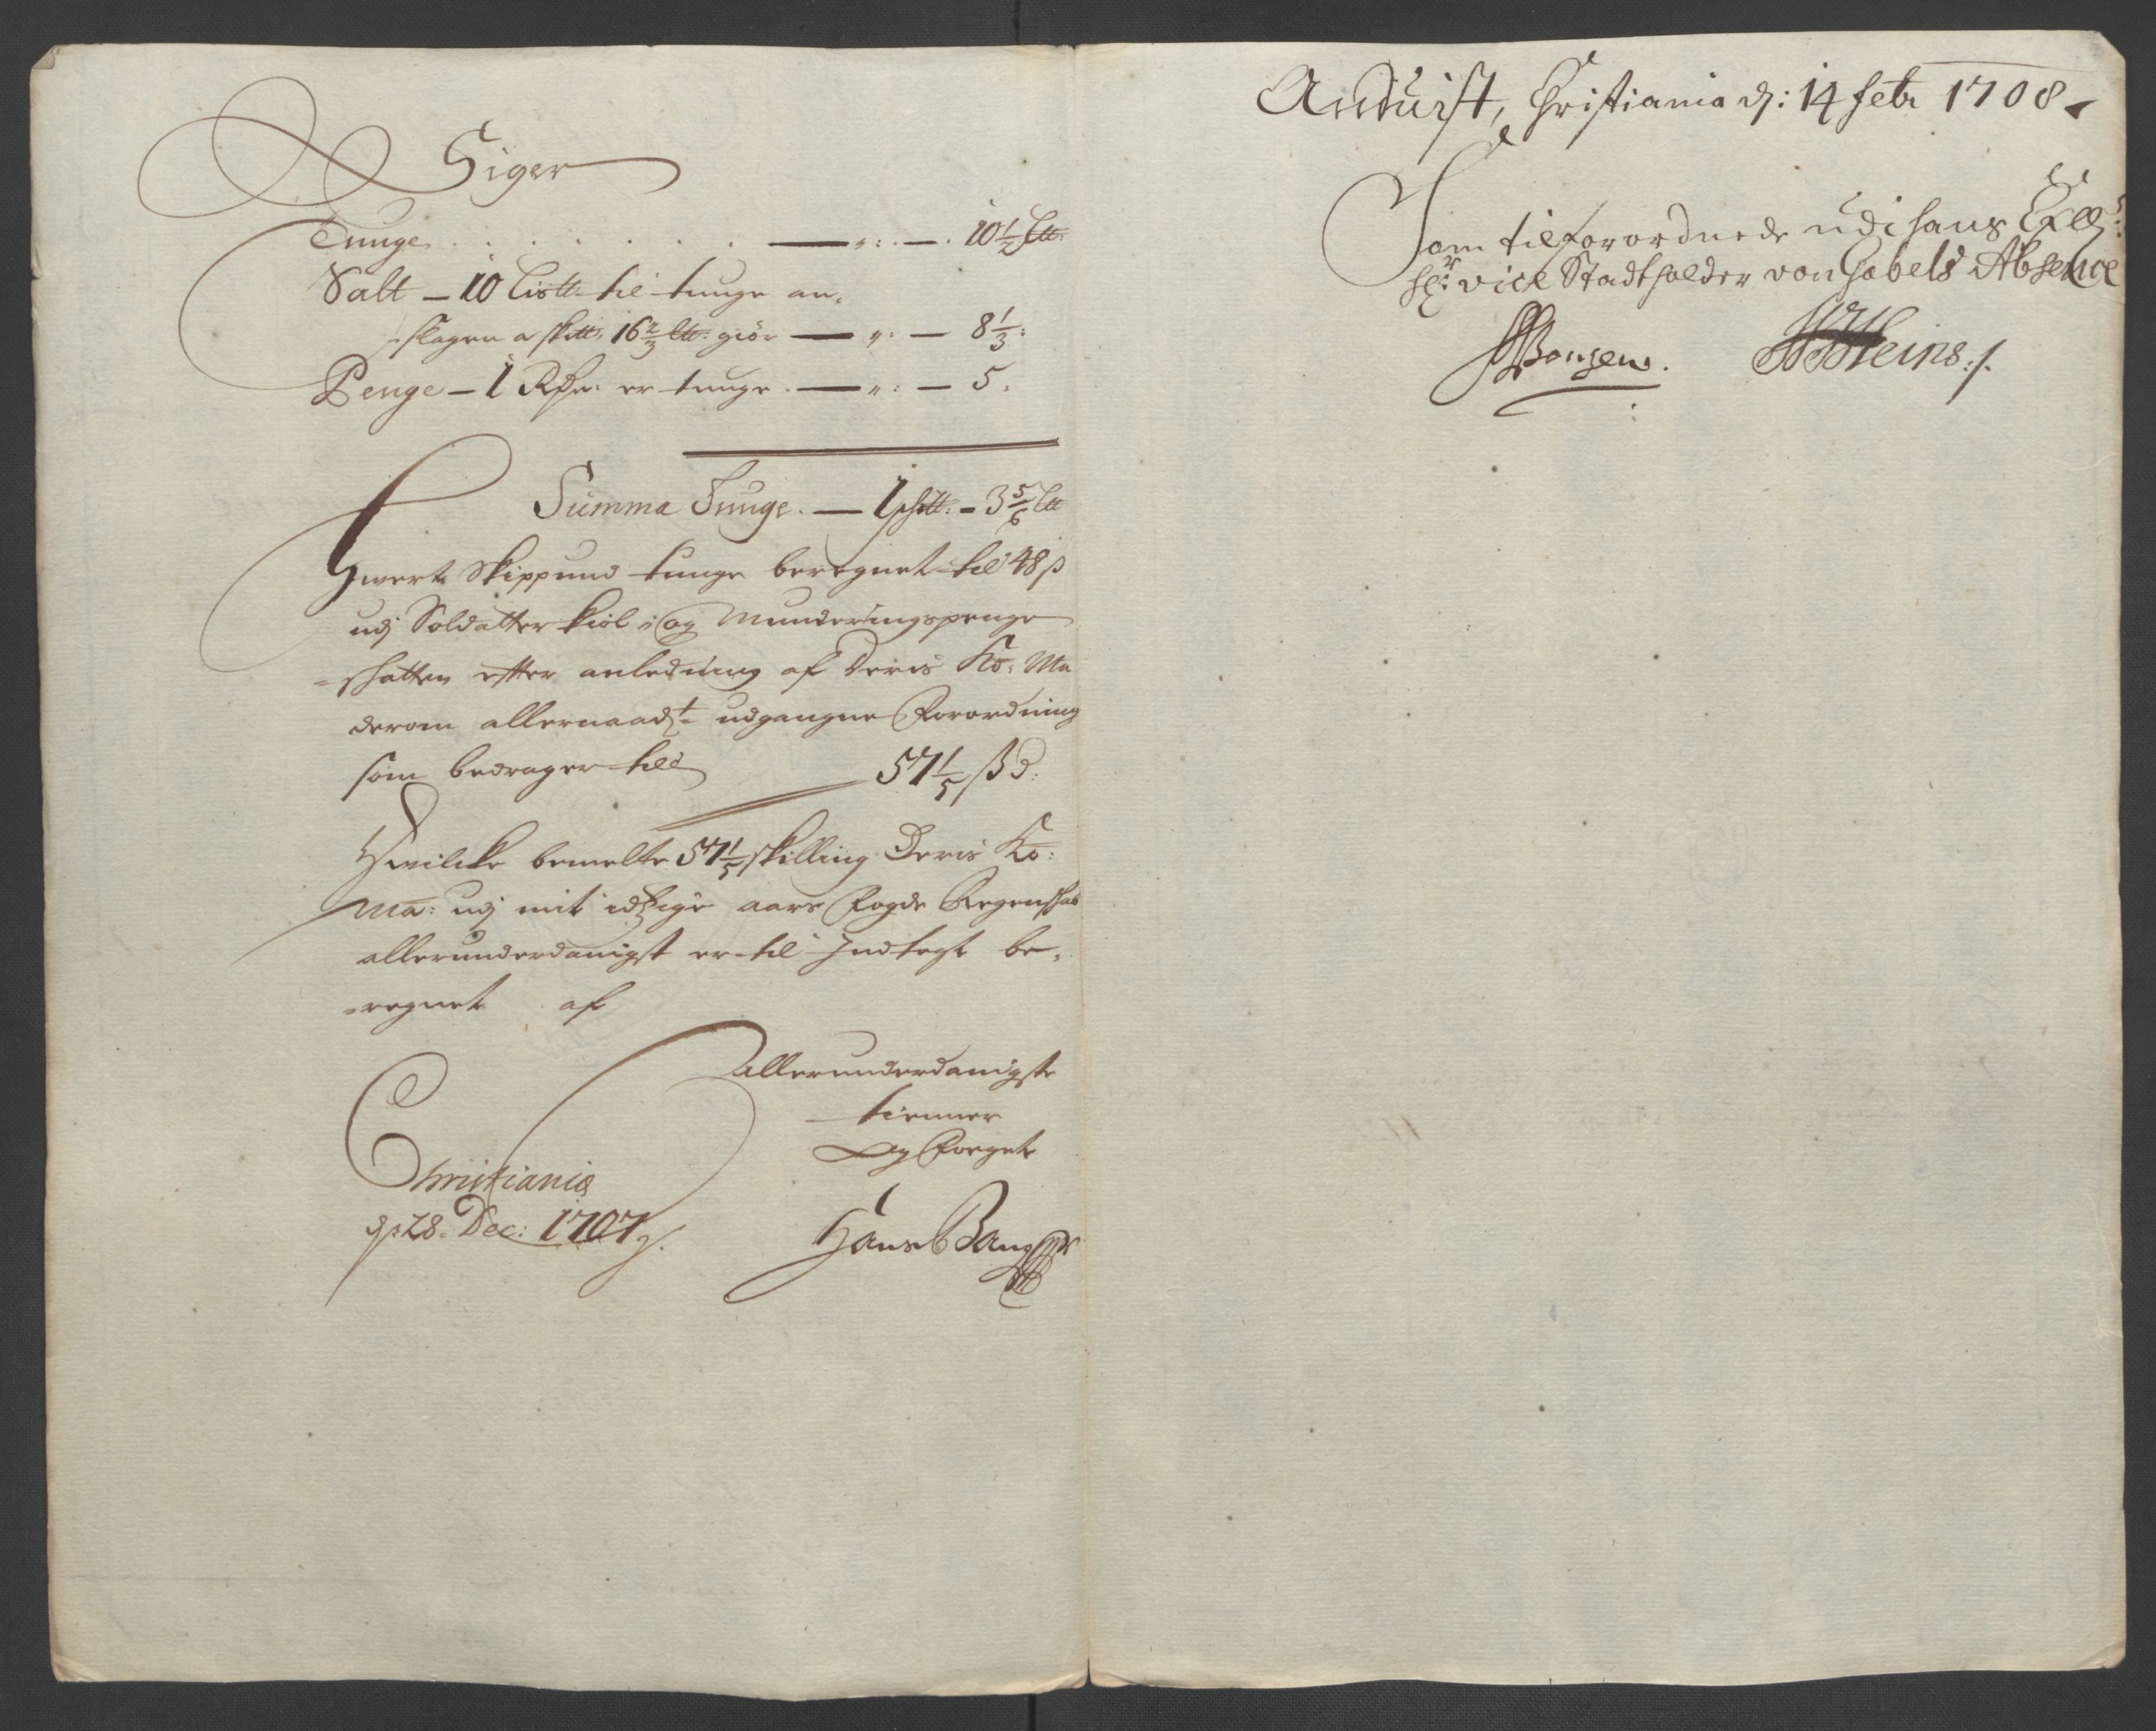 Siger
Tunge . . . . . . . — „: — . 10½ Ltt:
Salt — 10 Listt. til tunge an„
„slagen a skitt. 16⅔ Ltt: giör — „: — 8⅓:
Penge — 1 Rdr. er tunge . — „: — 5.
Summa Tunge. — 1 schtt: — 3⅚ Ltt
Hwert Skippund tunge beregnet til 48 ß
udj Soldatter kiol „ og Munderingspenge
„schatten efter anledning af Deris Ko: Ma
derom allernaadt udgangne Forordning
som bedrager til 57⅕ ß d:
Hwilcke bemelte 57⅕ skilling Deris Ko:
Ma: udj mit idtzige aars Fogde Regenschab
allerunderdanigst er til Indtegt be„
„regnet af
Allerunderdanigste
tienner
og Foeget
Christiania
dn 28. Dec: 1707
Hans Bang
Anduist, Christiania d: 14 febr 1708
Som tilforordnede udi hans Excell:
hr: vice Stadtholder von Gabels Absence